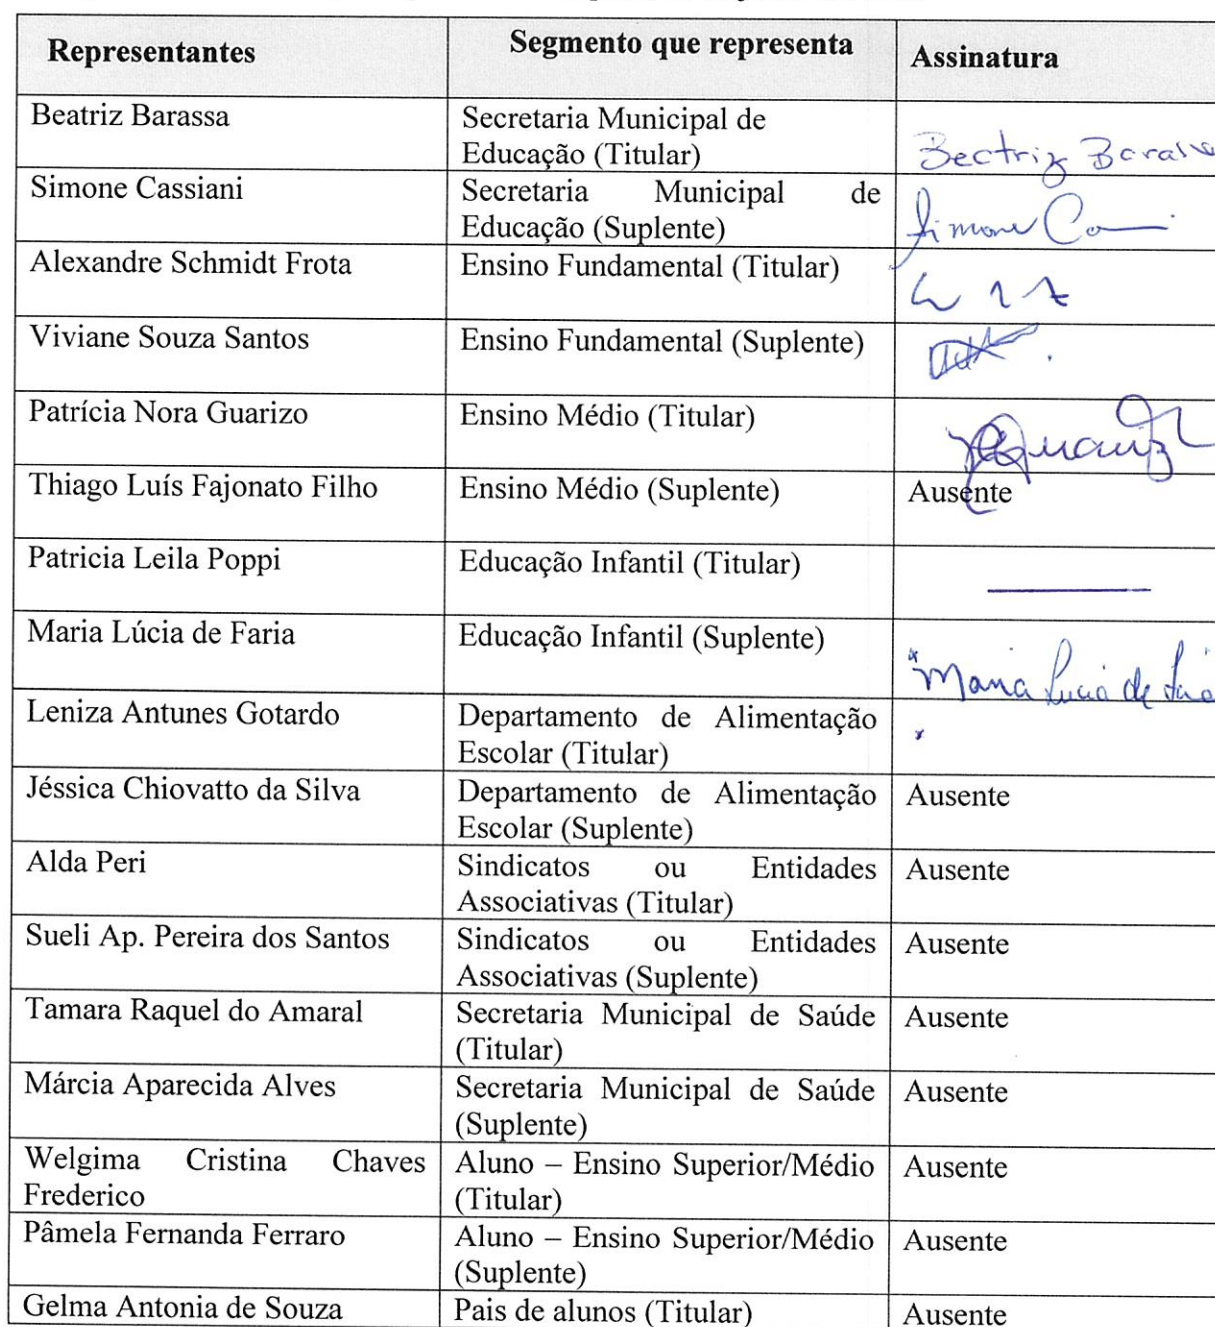 Representantes Segmento que representa Assinatura
Beatriz Barassa Secretaria Municipal de
Educação (Titular) Beatriz Barassa
Simone Cassiani Secretaria Municipal de
Educação (Suplente) Simone
Alexandre Schmidt Frota Ensino Fundamental (Titular)
Viviane Souza Santos Ensino Fundamental (Suplente)
Patrícia Nora Guarizo Ensino Médio (Titular)
Thiago Luís Fajonato Filho Ensino Médio (Suplente) Ausente
Patricia Leila Poppi Educação Infantil (Titular)
Maria Lúcia de Faria Educação Infantil (Suplente)
Maria Lucia de
Leniza Antunes Gotardo Departamento de Alimentação
Escolar (Titular)
Jéssica Chiovatto da Silva Departamento de Alimentação Ausente
Escolar (Suplente)
Alda Peri Sindicatos ou Entidades Ausente
Associativas (Titular)
Sueli Ap. Pereira dos Santos Sindicatos ou Entidades Ausente
Associativas (Suplente)
Tamara Raquel do Amaral Secretaria Municipal de Saúde Ausente
(Titular)
Márcia Aparecida Alves Secretaria Municipal de Saúde Ausente
(Suplente)
Welgima Cristina Chaves Aluno – Ensino Superior/Médio Ausente
Frederico (Titular)
Pâmela Fernanda Ferraro Aluno – Ensino Superior/Médio Ausente
(Suplente)
Gelma Antonia de Souza Pais de alunos (Titular) Ausente